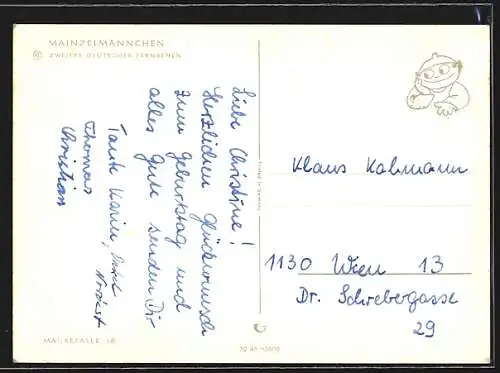 MAINZELMÄNNCHEN
© ZWEITES DEUTSCHES FERNSEHEN
Liebe Christine!
Herzlichen Glückwunsch
zum Geburtstag und
alles Gute senden Dir
Tante Karin,
Norbert
Thomas
Christian
Klaus Kalmann
1130 Wien 13
Dr. Schrebergasse
29
MAUSEFALLE 18